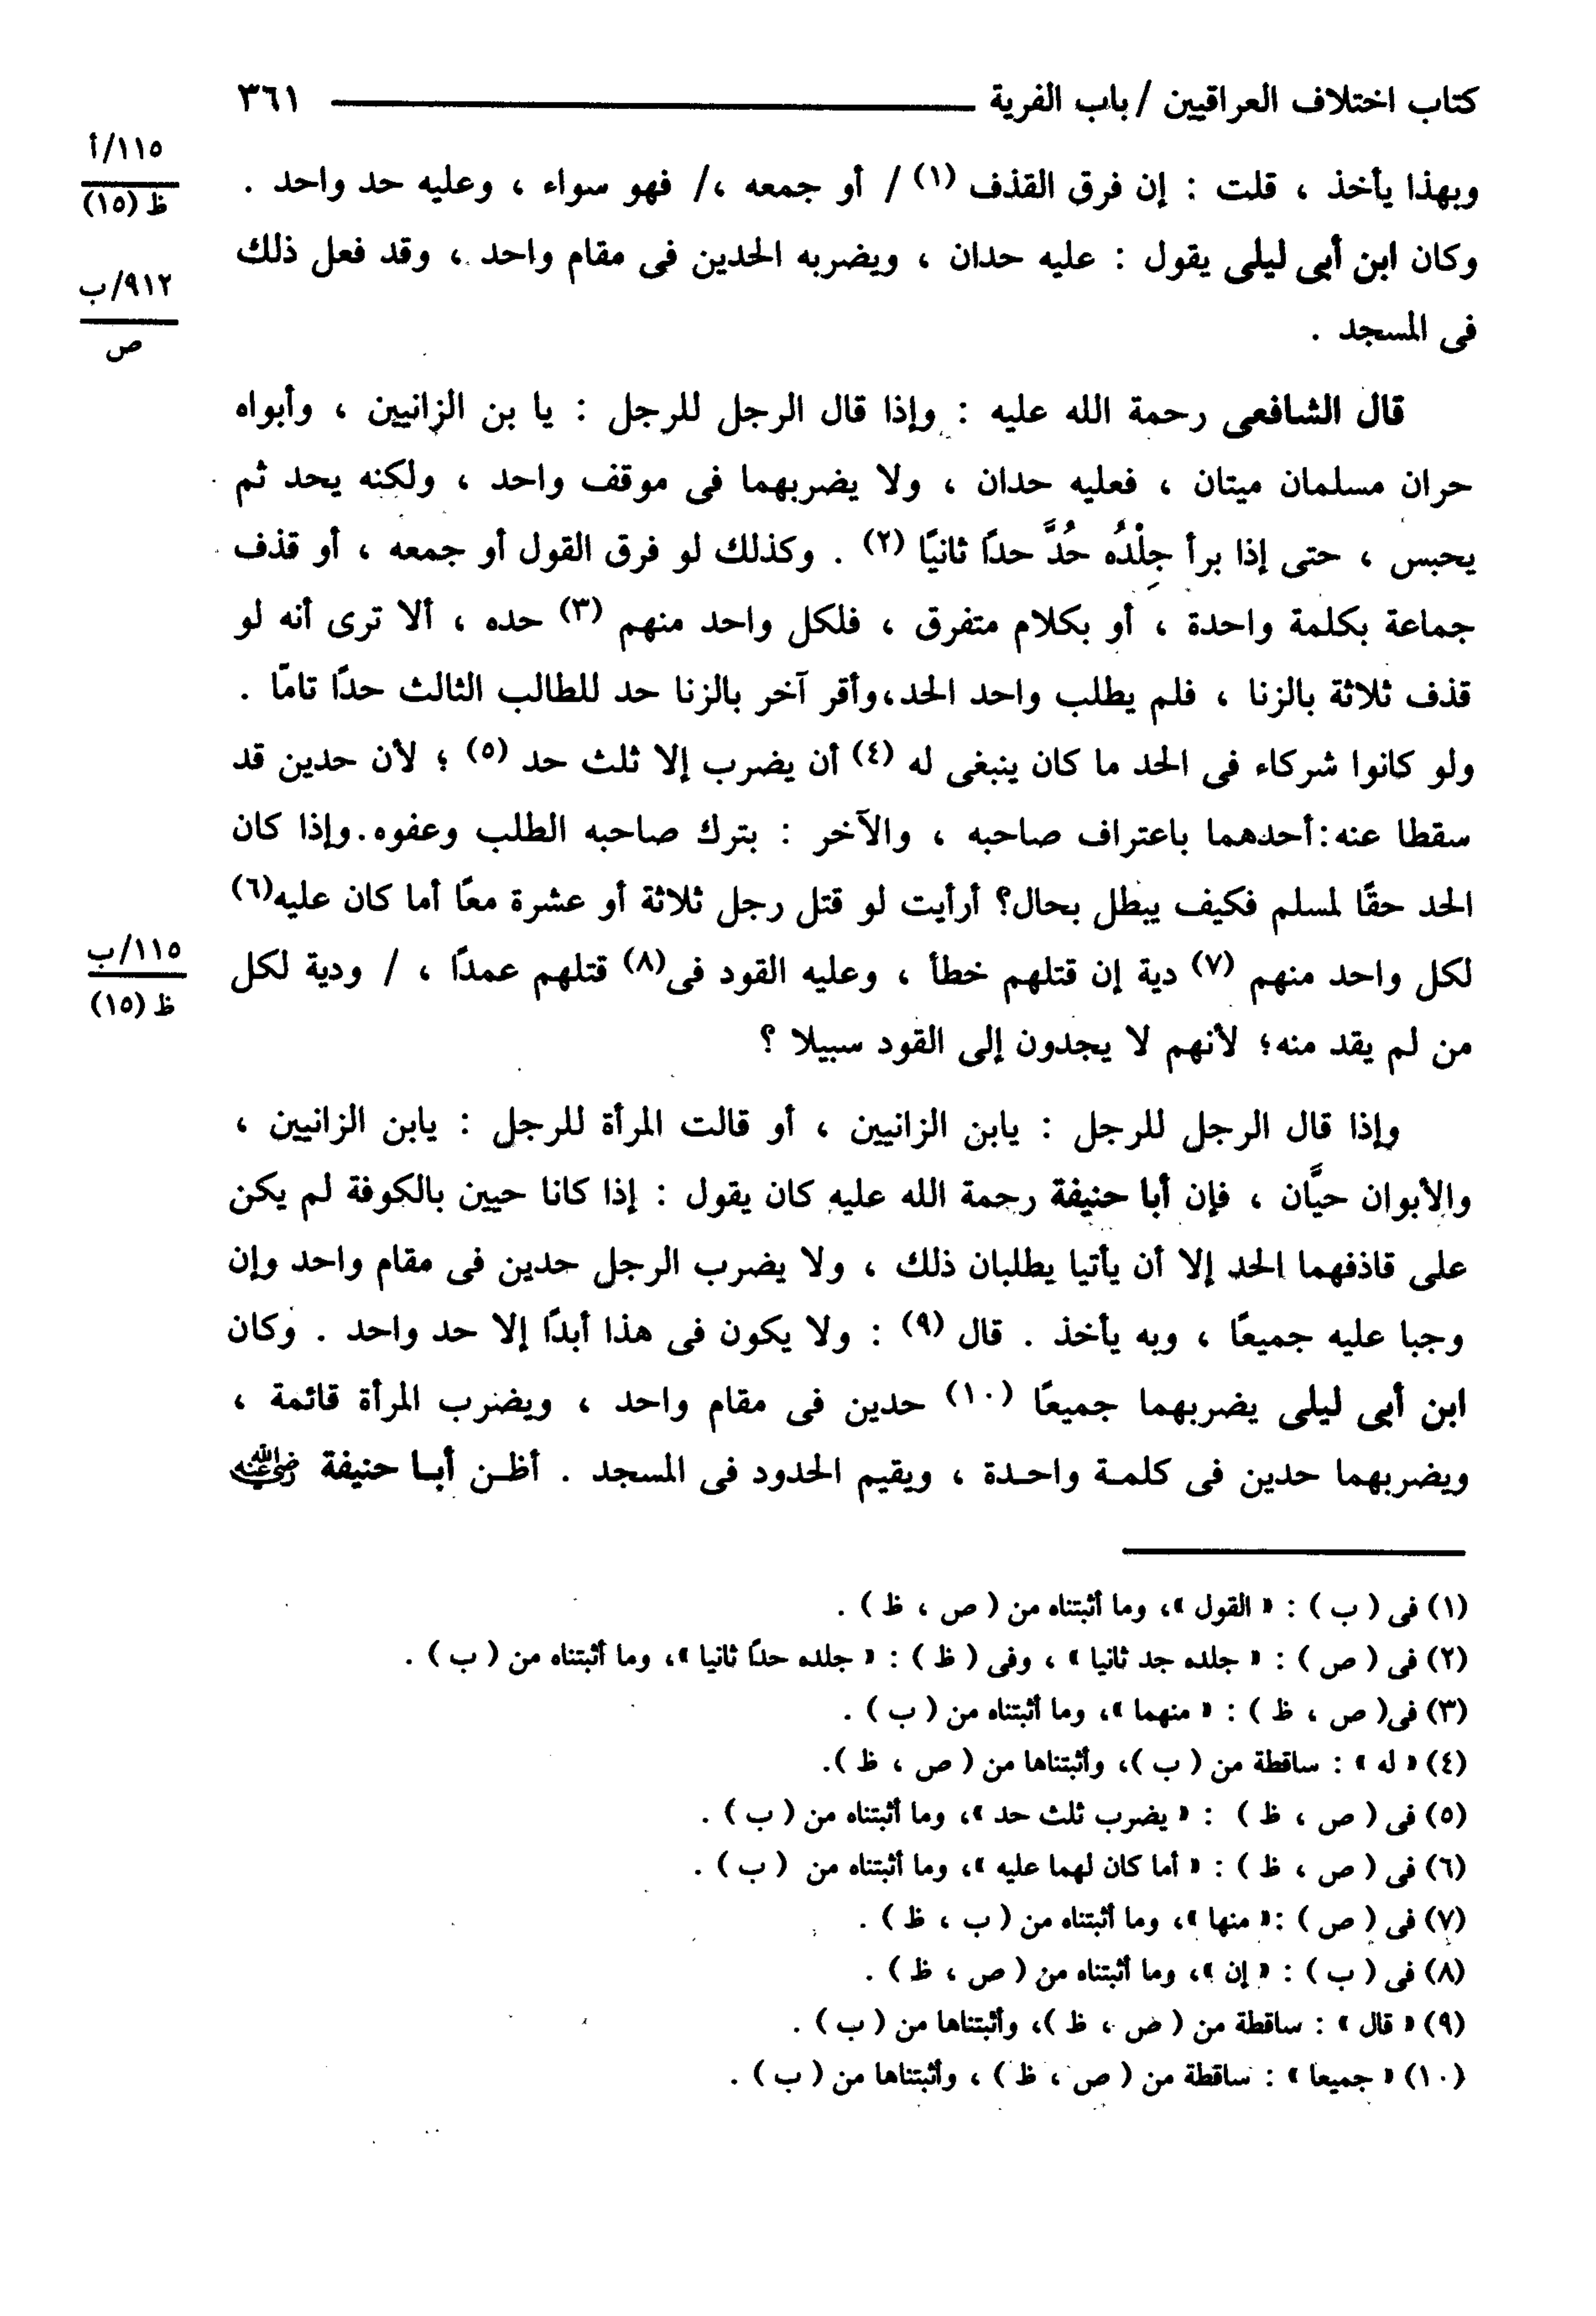 كتاب اختلاف العراقيين / باب الفرية ٣٦١
١١٥/أ
ظ (١٥)
وبهذا يأخذ ، قلت : إن فرق القذف (١) / أو جمعه ،/ فهو سواء ، وعليه حد واحد .
٩١٢/ب
ص
وكان ابن أبى ليلى يقول : عليه حدان ، ويضربه الحدين فى مقام واحد ، وقد فعل ذلك
فى المسجد .
قال الشافعى رحمة الله عليه : وإذا قال الرجل للرجل : يا بن الزانيين ، وأبواه
حران مسلمان ميتان ، فعليه حدان ، ولا يضربهما فى موقف واحد ، ولكنه يحد ثم
يحبس ، حتى إذا برأ جِلْدُه حُدَّ حدًا ثانيًا (٢) . وكذلك لو فرق القول أو جمعه ، أو قذف
جماعة بكلمة واحدة ، أو بكلام متفرق ، فلكل واحد منهم (٣) حده ، ألا ترى أنه لو
قذف ثلاثة بالزنا ، فلم يطلب واحد الحد،وأقر آخر بالزنا حد للطالب الثالث حدًا تامًا .
ولو كانوا شركاء فى الحد ما كان ينبغى له (٤) أن يضرب إلا ثلث حد (٥) ؛ لأن حدين قد
سقطا عنه:أحدهما باعتراف صاحبه ، والآخر : بترك صاحبه الطلب وعفوه.وإذا كان
الحد حقًا لمسلم فكيف يبطل بحال؟ أرأيت لو قتل رجل ثلاثة أو عشرة معًا أما كان عليه(٦)
لكل واحد منهم (٧) دية إن قتلهم خطأ ، وعليه القود فى(٨) قتلهم عمدًا ، / ودية لكل
١١٥/ب
ظ (١٥)
من لم يقد منه؛ لأنهم لا يجدون إلى القود سبيلا ؟
وإذا قال الرجل للرجل : يابن الزانيين ، أو قالت المرأة للرجل : يابن الزانيين ،
والأبوان حيَّان ، فإن أبا حنيفة رحمة الله عليه كان يقول : إذا كانا حيين بالكوفة لم يكن
على قاذفهما الحد إلا أن يأتيا يطلبان ذلك ، ولا يضرب الرجل حدين فى مقام واحد وإن
وجبا عليه جميعًا ، وبه يأخذ . قال (٩) : ولا يكون فى هذا أبدًا إلا حد واحد . وكان
ابن أبى ليلى يضربهما جميعًا (١٠) حدين فى مقام واحد ، ويضرب المرأة قائمة ،
ويضربهما حدين فى كلمـة واحـدة ، ويقيم الحدود فى المسجد . أظـن أبـا حنيفة رضي الله عنه
(١) فى ( ب ) : « القول »، وما أثبتناه من ( ص ، ظ ) .
(٢) فى ( ص ) : « جلده جد ثانيا » ، وفى ( ظ ) : « جلده حدًا ثانيا »، وما أثبتناه من ( ب ) .
(٣) فى( ص ، ظ ) : « منهما »، وما أثبتناه من ( ب ) .
(٤) « له » : ساقطة من ( ب )، وأثبتناها من ( ص ، ظ ).
(٥) فى ( ص ، ظ ) : « يضرب ثلث حد »، وما أثبتناه من ( ب ) .
(٦) فى ( ص ، ظ ) : « أما كان لهما عليه »، وما أثبتناه من ( ب ) .
(٧) فى ( ص ) :« منها »، وما أثبتناه من ( ب ، ظ ) .
(٨) فى ( ب ) : « إن »، وما أثبتناه من ( ص ، ظ ) .
(٩) « قال » : ساقطة من ( ص ، ظ )، وأثبتناها من ( ب ) .
(١٠) « جميعا » : ساقطة من ( ص ، ظ ) ، وأثبتناها من ( ب ) .